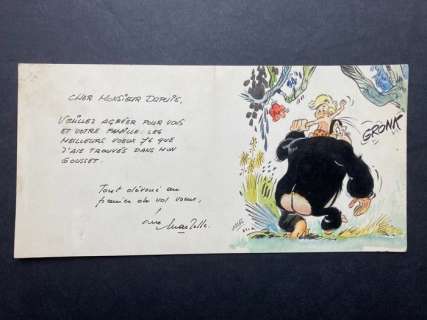 CHER MONSIEUR DUPUIS,
VEUILLEZ AGRÉER POUR VOUS
ET VOTRE FAMILLE : LES
MEILLEURS VOEUX 76 QUE
J'AIE TROUVÉS DANS MON
GOUSSET.
Tout dévoué au
premier de vos voeux,
GRONK